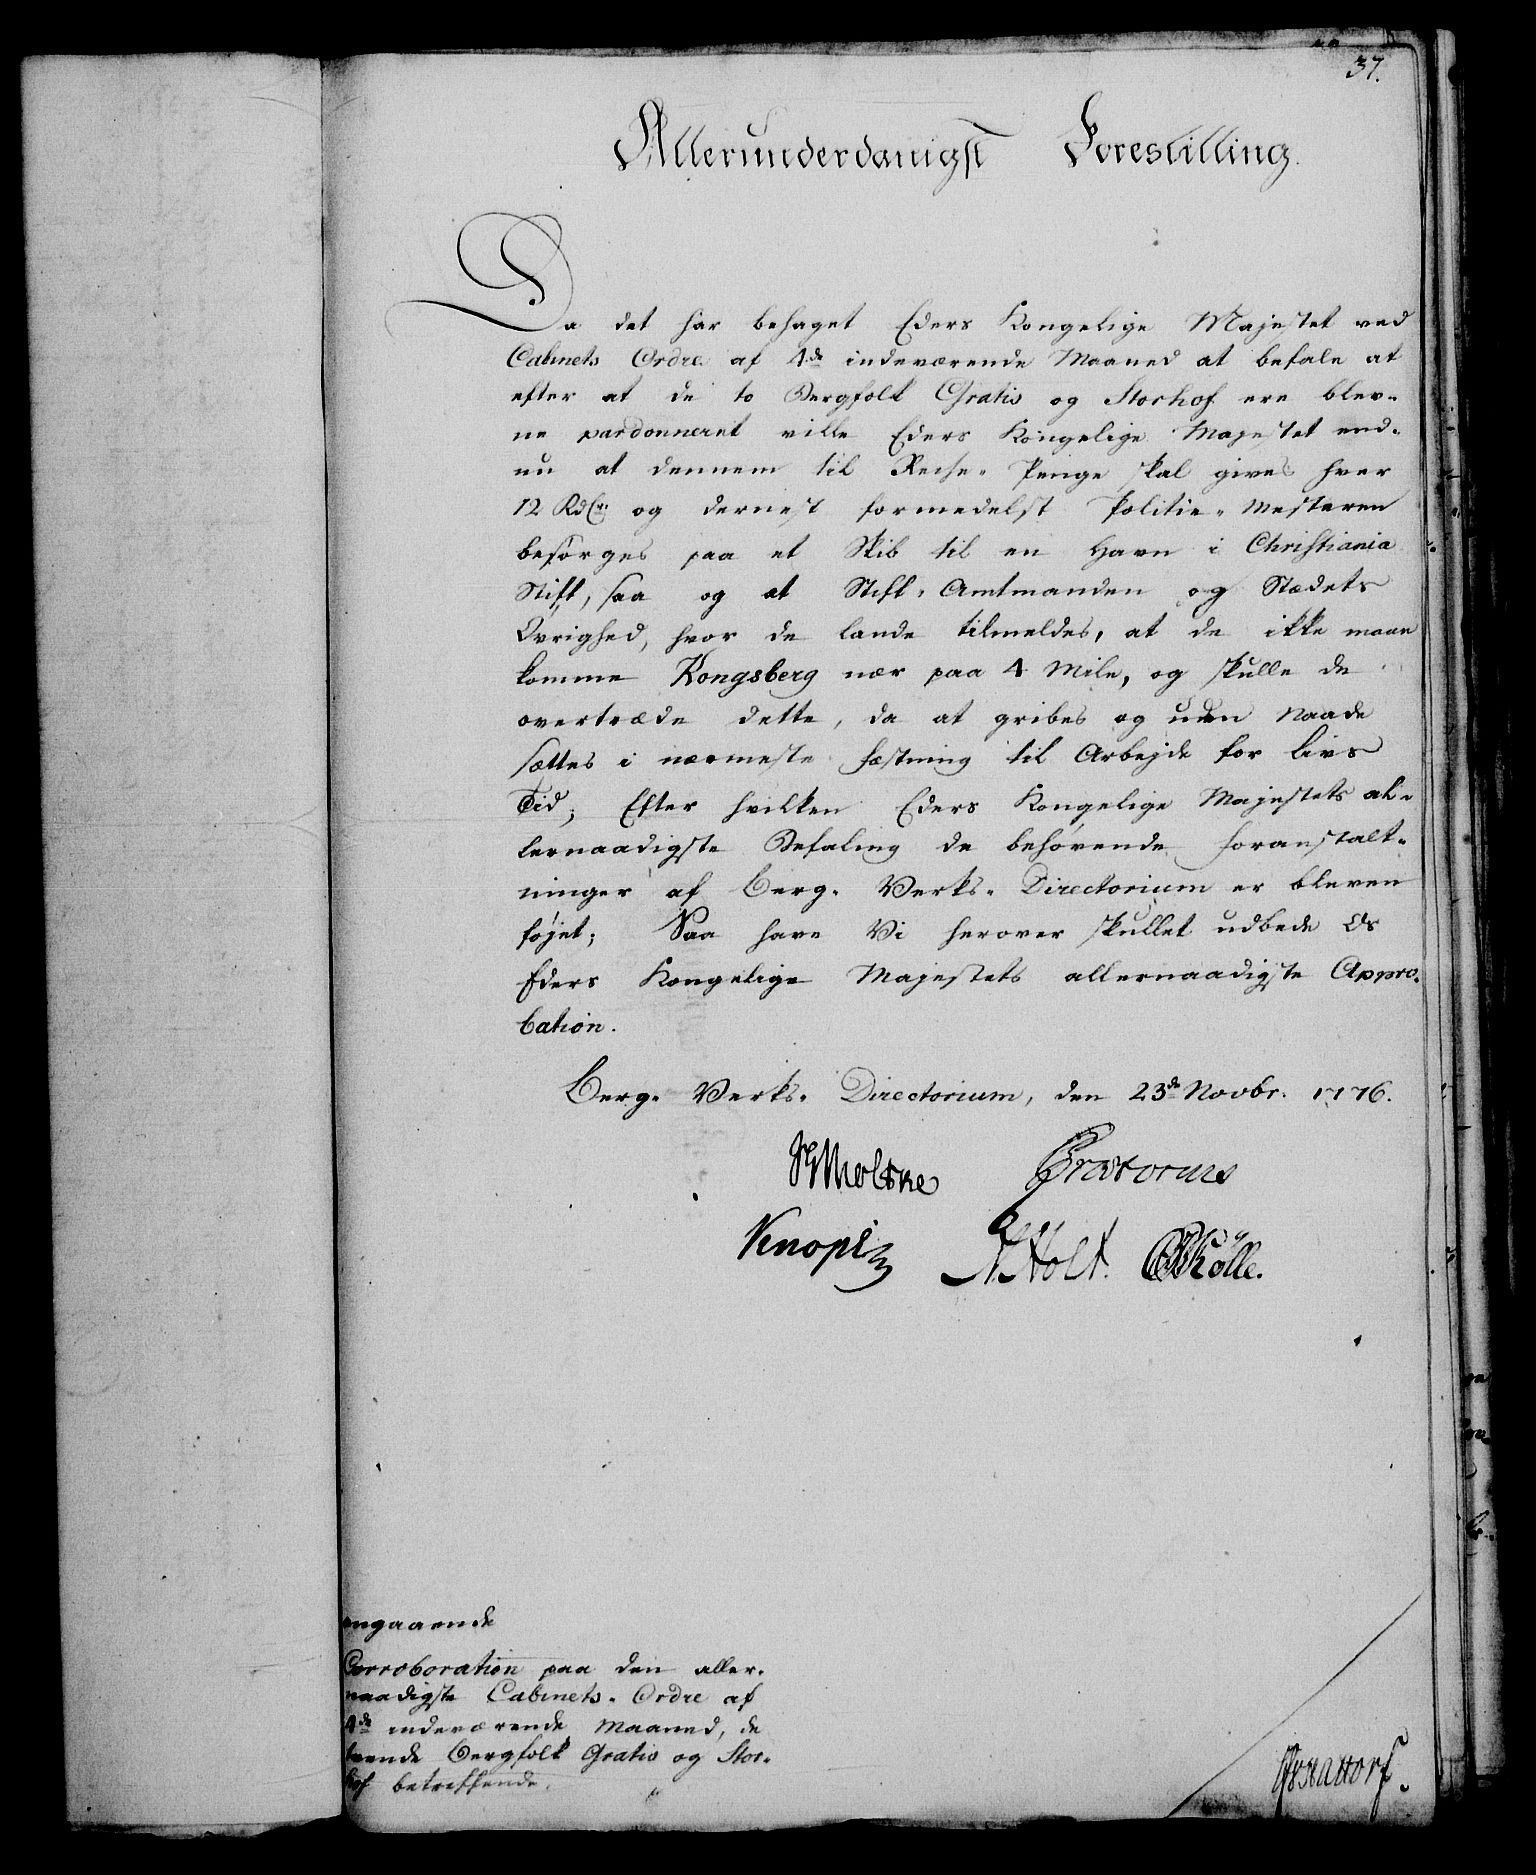 37.
Allerunderdanigst Forestilling.
Da det har behaget Eders Kongelige Majestet ved
Cabinets Ordre af 4de indeværende Maaned at befale at
efter at de to Bergfolk Gratis og Storhof ere blev-
ne pardonneret ville Eders Kongelige Majestet end-
nu at dennem til Reise-Penge skal gives hver
12 Rdlr. og dernest formedelst Politie-Mesteren
besørges paa et Skib til en Havn i Christiania
Stift, saa og at Stift-Amtmanden og Stædets
Øvrighed, hvor de lande tilmeldes, at de ikke maae
komme Kongsberg nær paa 4 Mile, og skulle de
overtræde dette, da at gribes og uden Naade
sættes i nærmeste Fæstning til Arbejde for Livs
Tid; Efter hvilken Eders Kongelige Majestets al-
lernaadigste Befaling de behøvende Foranstalt-
ninger af Berg-Verks-Directorium er bleven
føjet; Saa have Vi herover skullet udbede Os
Eders Kongelige Majestets allernaadigste Appro-
bation.
Berg-Verks-Directorium, den 23de Novbr. 1776.
Moltke Prætorius
Knoph NHolt. Kölle.
angaaende
Corroboration paa den aller-
naadigste Cabinets-Ordre af
4de indeværende Maaned, de
tvende Bergfolk Gratis og Stor-
hof betreffende.